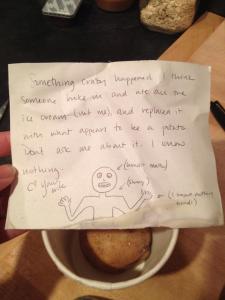 Something crazy happened. I think
someone broke in and ate all the
ice cream (not me) and replaced it
with what appears to be a potato.
Don't ask me about it. I know
nothing.
Your wife
(skinny)
(I know nothing
hands)